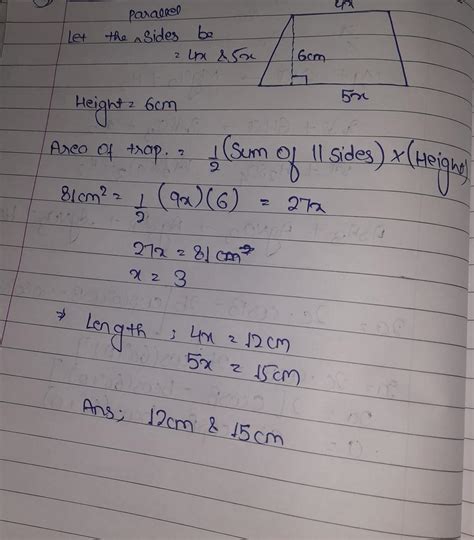 4x
Parallel
Let the ^ sides be
= 4x & 5x
6cm
5x
Height = 6cm
Area of trap. = 1/2 (Sum of || sides) × (Height)
81cm² = 1/2 (9x)(6) = 27x
27x = 81 cm²
x = 3
⇒ Length ; 4x = 12cm
5x = 15cm
Ans; 12cm & 15cm